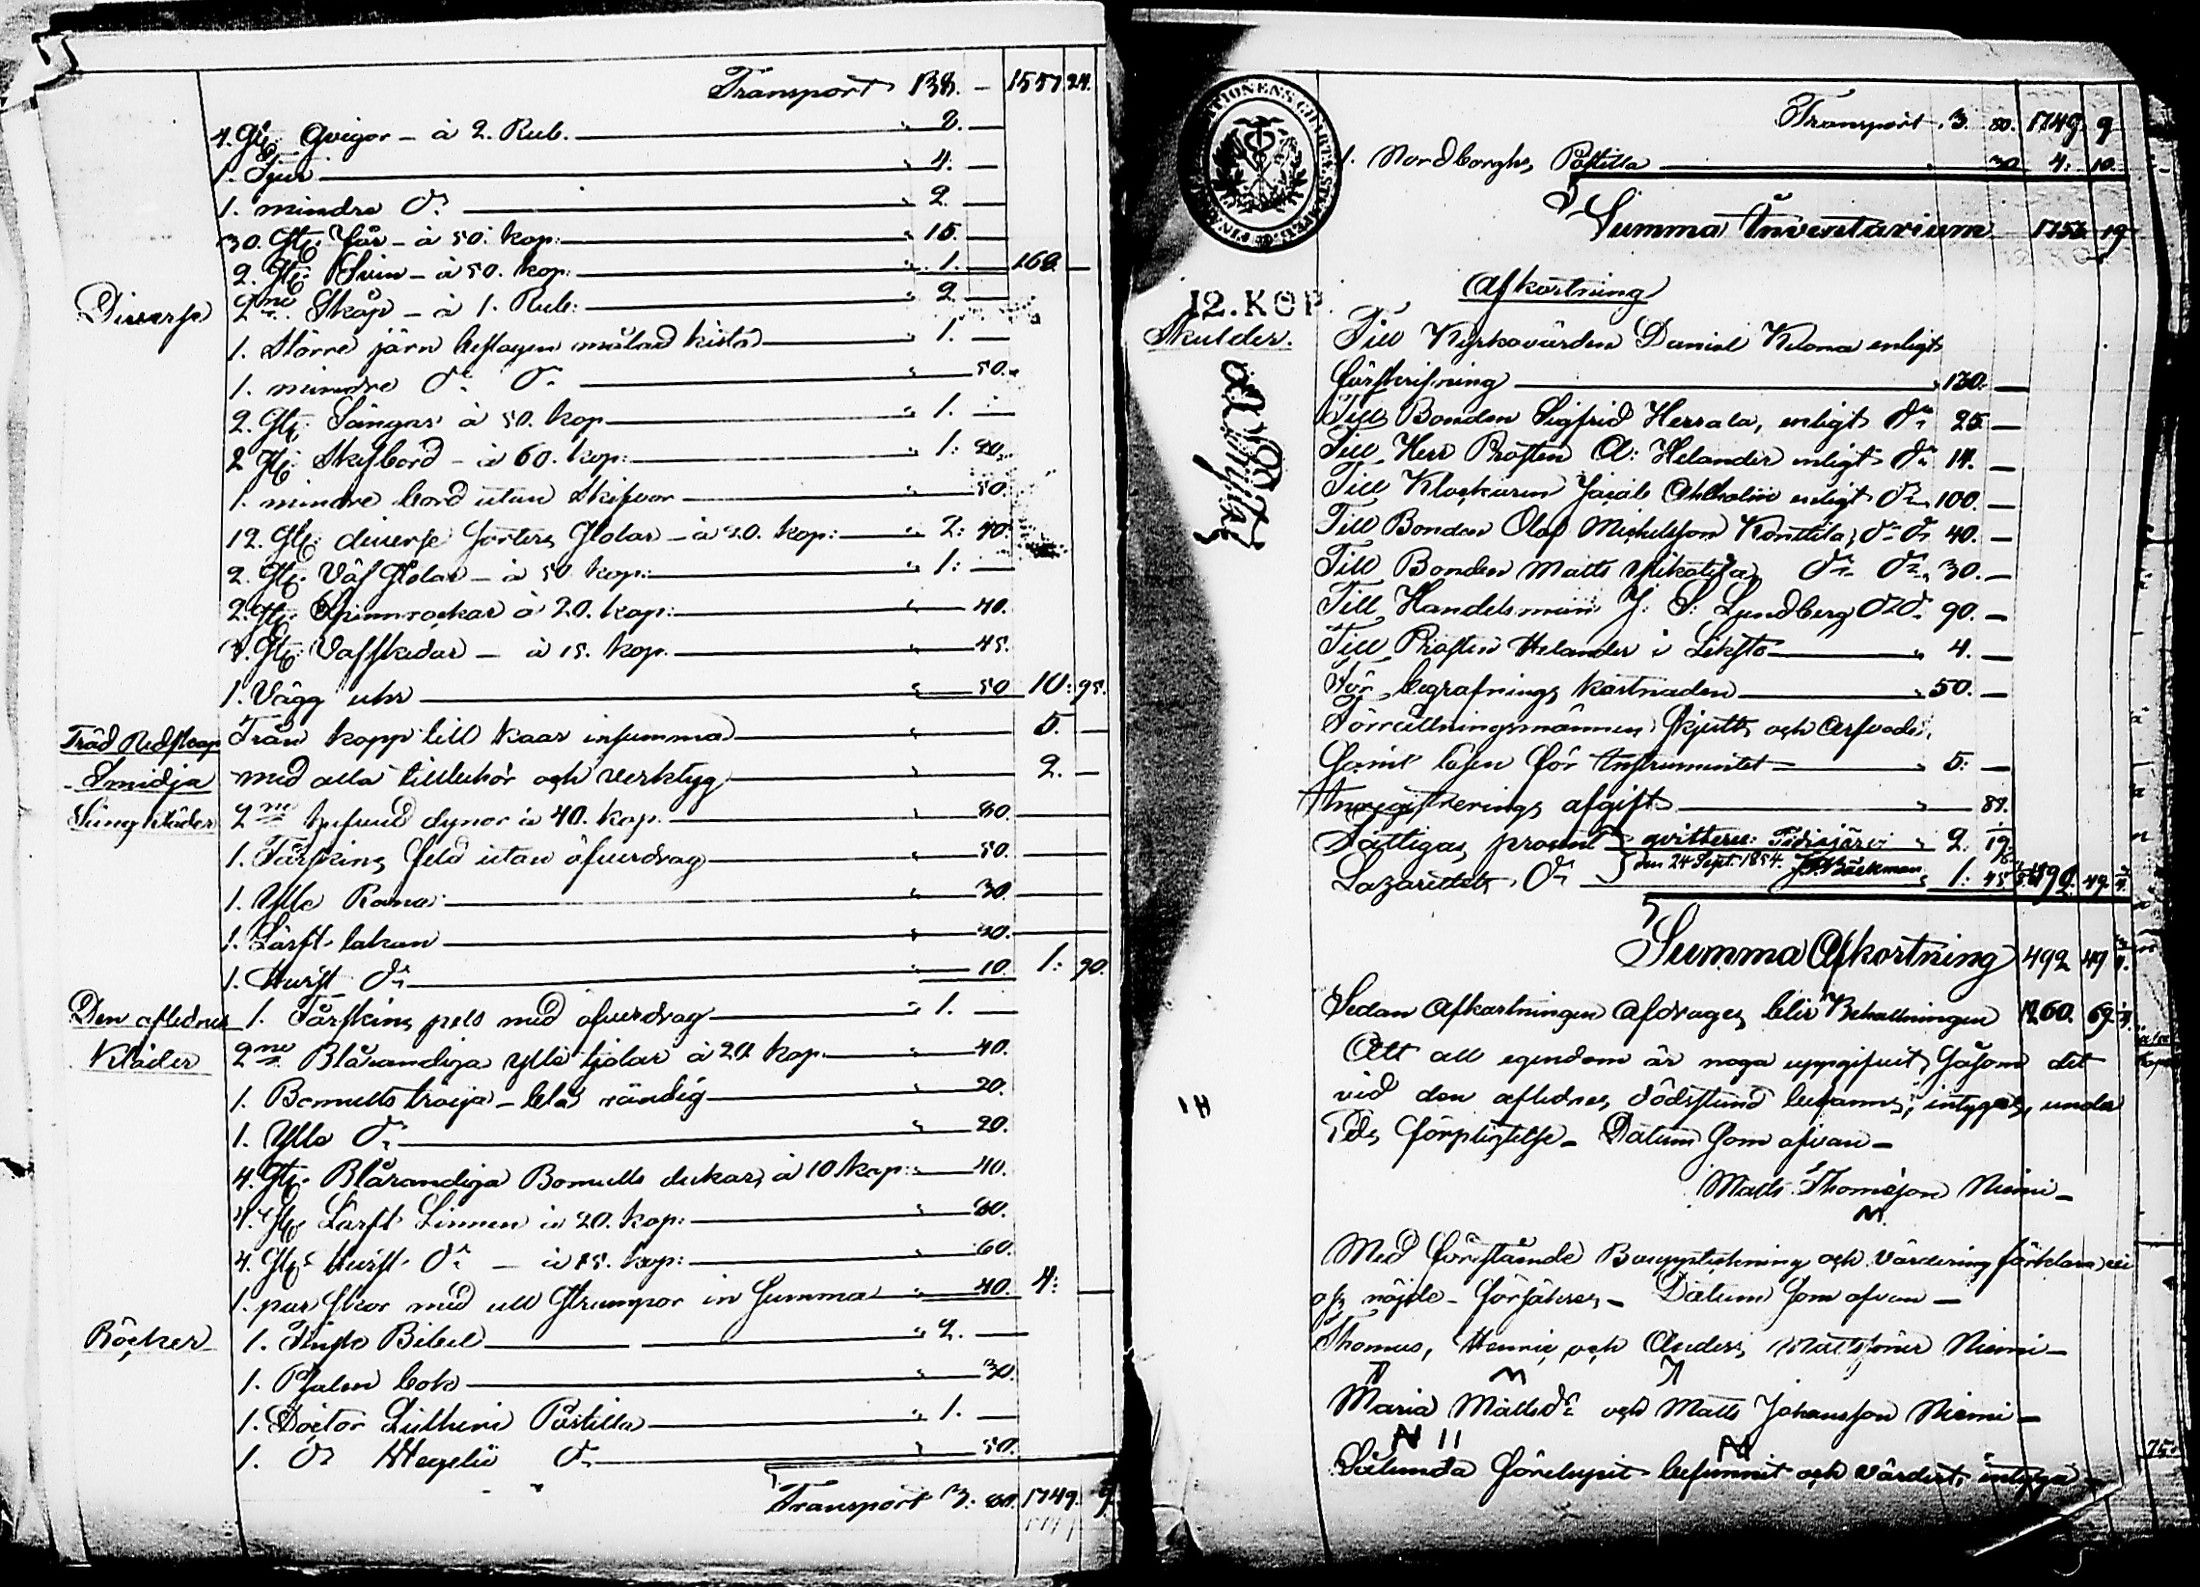 Transport 138. — 1557. 24.
4. St: Qvigor – à 2. Rub. " 8. —
1. Tjur " 4. —
1. mindre do " 2. —
30. St: Får – à 50. kop: " 15. —
2. St: Svin – à 50. kop: " 1. — 168. —
Diverse 2ne Skåp – à 1. Rub: " 2 —
1. Större järn beslagen målad kista " 1. —
1. mindre do do " — 50.
2. St: Sängar à 50. kop " 1. —
2 St: Skifbord – à 60. kop: " 1: 20.
1. mindre bord utan Skifvor " — 50.
12. St: diverse sorters Stolar – à 20. kop: " 2: 40.
2. St: Väf Stolar – à 50 kop: " 1: —
2. St: Spinnrockar à 20. kop: " — 40.
3. St: Vafskedar – à 15. kop. " — 45.
1. Vägg uhr " — 50 10: 95.
Träd Redskap Från kopp till kaar insumma " 5. —
Smidja med alla tillbehör och verktyg " 2. —
Sängkläder 2ne hufvud dynor à 40. kop. " — 80.
1. Fårskins fäld utan öfverdrag " — 50.
1. Ylle Rana " — 30.
1. Lärft lakan " — 20.
1. Hurst do " — 10 1: 90.
Den aflednes 1. Fårskins pels med öfverdrag " 1. —
Kläder 2ne Blårandiga ylle kjolar à 20 kop " — 40.
1. Bomulls troija – blå rändig " — 20.
1. Ylle do " — 20.
4. St: Blårandiga Bomulls dukar, à 10 kop: " — 40.
4. St: Lärft Linnen à 20. kop: " — 80.
4. St: Hurst do – à 15. kop: " — 60.
1. par skor med ull Strumpor in Summa " — 40. 4: —
Böcker 1. Finsk Bibel " 2. —
1. Psalm bok " — 30.
1. Doctor Lutheri Postilla " 1. —
1. do Hegelii do " — 50.
Transport 3: 80. 1749. 9.
Transport 3. 80. 1749. 9
1. Nordborghs Postilla " 30 4: 10.
Summa Inventarium 1753 19
Afkortning
12. KOP.
Skulder. Till Kyrkovärden Daniel Kilona enligt
förskrifning " 130. —
Till Bonden Sigfrid Herrala, enligt do 25 —
Till Herr Prosten A: Helander enligt do 14. —
Till Klockaren Jacob Ahlholm enligt do 100. —
Till Bonden Olof Mickelsson Konttila, do do 40. —
Till Bonden Matts do do " 30. —
Till Handelsman J: S: Lundberg do do 90. —
Till Prosten Helander i Likstol " 4. —
För begrafnings kostnaden " 50. —
Förrättningsmännens skjutts och Arfvode,
samt lösen för Instrumentet " 5: —
Inregistrerings afgift " —
Fattigas procent qvitteras: Pidisjärvi " 2. 19
den 24 Sept. 1854. J. Bäckman
Lazarettets do 1: 45 492. 49. ¾
Summa Afkortning 492 49 ¾
Sedan Afkortningen afdrages, blir Behållningen 1260. 69. ¼
Att all egendom är noga uppgifvit, såsom det
vid den aflednes dödsstund befanns, intygas, under
Eds förpligtelse – Datum som ofvan –
Matts Thomasson Niemi –
Med förestående Bouppteckning och värdering förklara vi
oss nöjde – försäkras – Datum som ofvan –
Thomas, Henric, och Anders Mattssöner Niemi –
Maria Mattsdr och Matts Johansson Niemi –
Sålunda förelupit befunnit och värdert, intyga